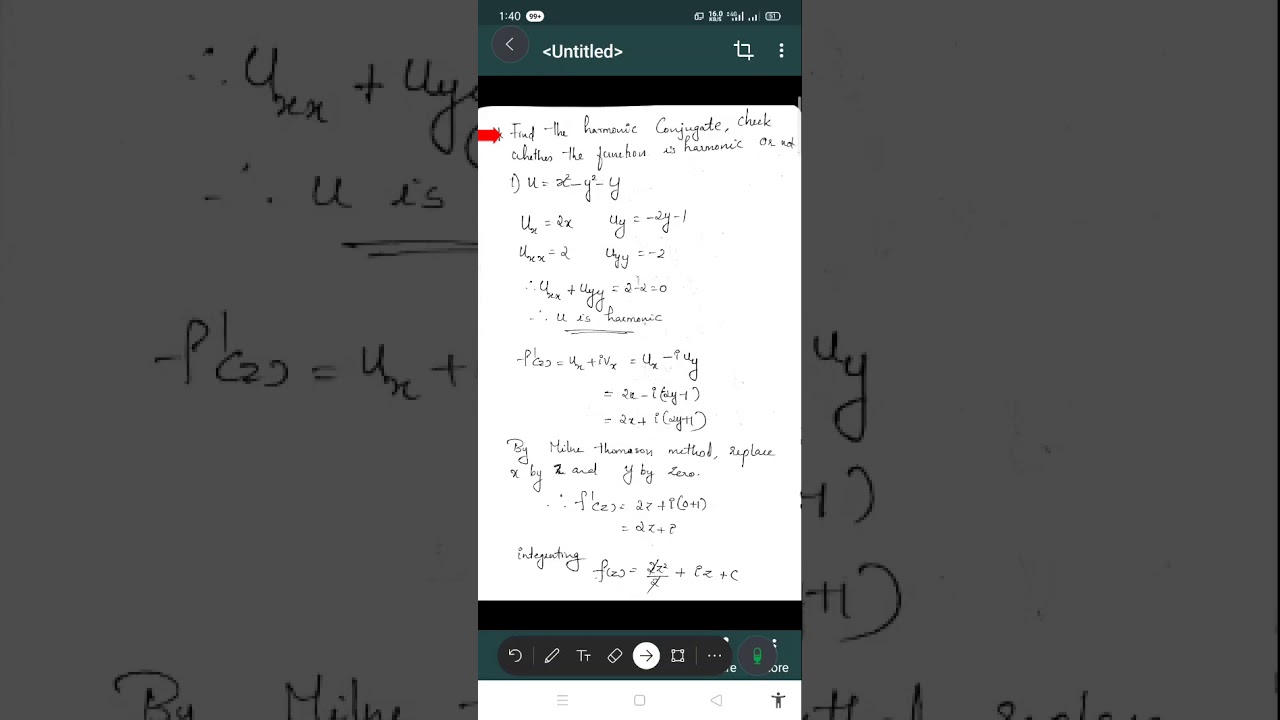 1:40 99+ 16.0 KB/S 4G 51
<Untitled>
* Find the harmonic Conjugate, check
whether the function is harmonic or not
1) u = x² - y² - y
Uₓ = 2x uy = -2y-1
Uₓₓ = 2 uyy = -2
∴ Uₓₓ + uyy = 2-2=0
∴ u is harmonic
f'(z) = uₓ + ivₓ = uₓ - i uy
= 2x - i(-2y-1)
= 2x + i(2y+1)
By Milne thomason method, replace
x by z and y by zero.
∴ f'(z) = 2z + i(0+1)
= 2z + i
integrating f(z) = 2z²/2 + iz + c
Tт
re
ore
∴ Uₓₓ + uyy
∴ u is
f'(z) = uₓ +
uy
+1)
+1)
By Milne
method,